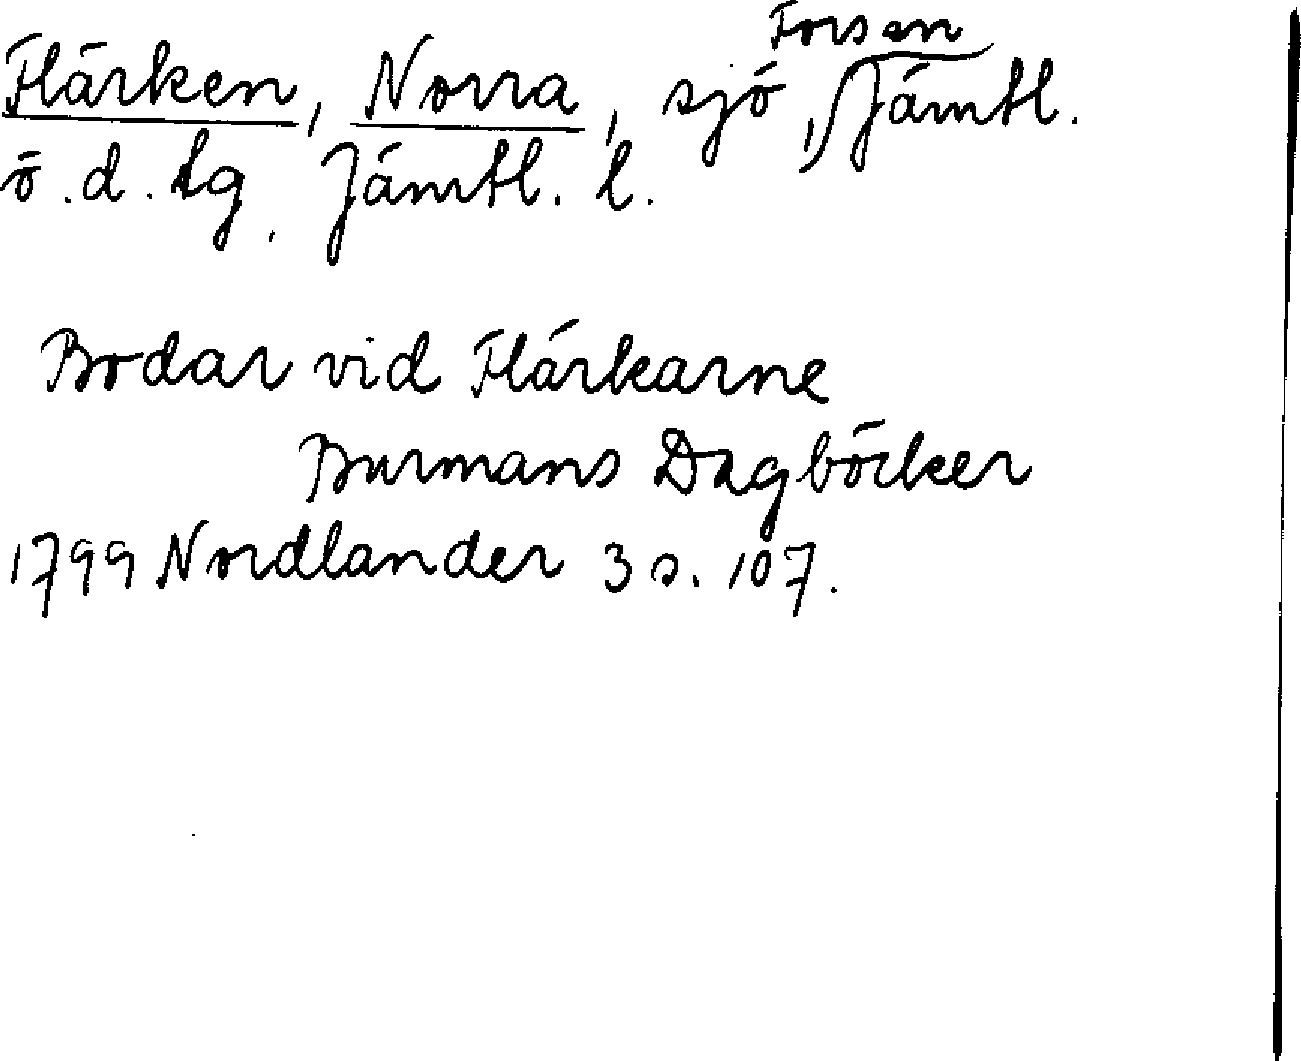 Forsen
Flärken, Norra, sjö, Jämtl.
ö.d. tg. Jämtl. l.
Bodar vid Flärkarne
Burmans Dagböcker
1799 Nordlander 3 s. 107.